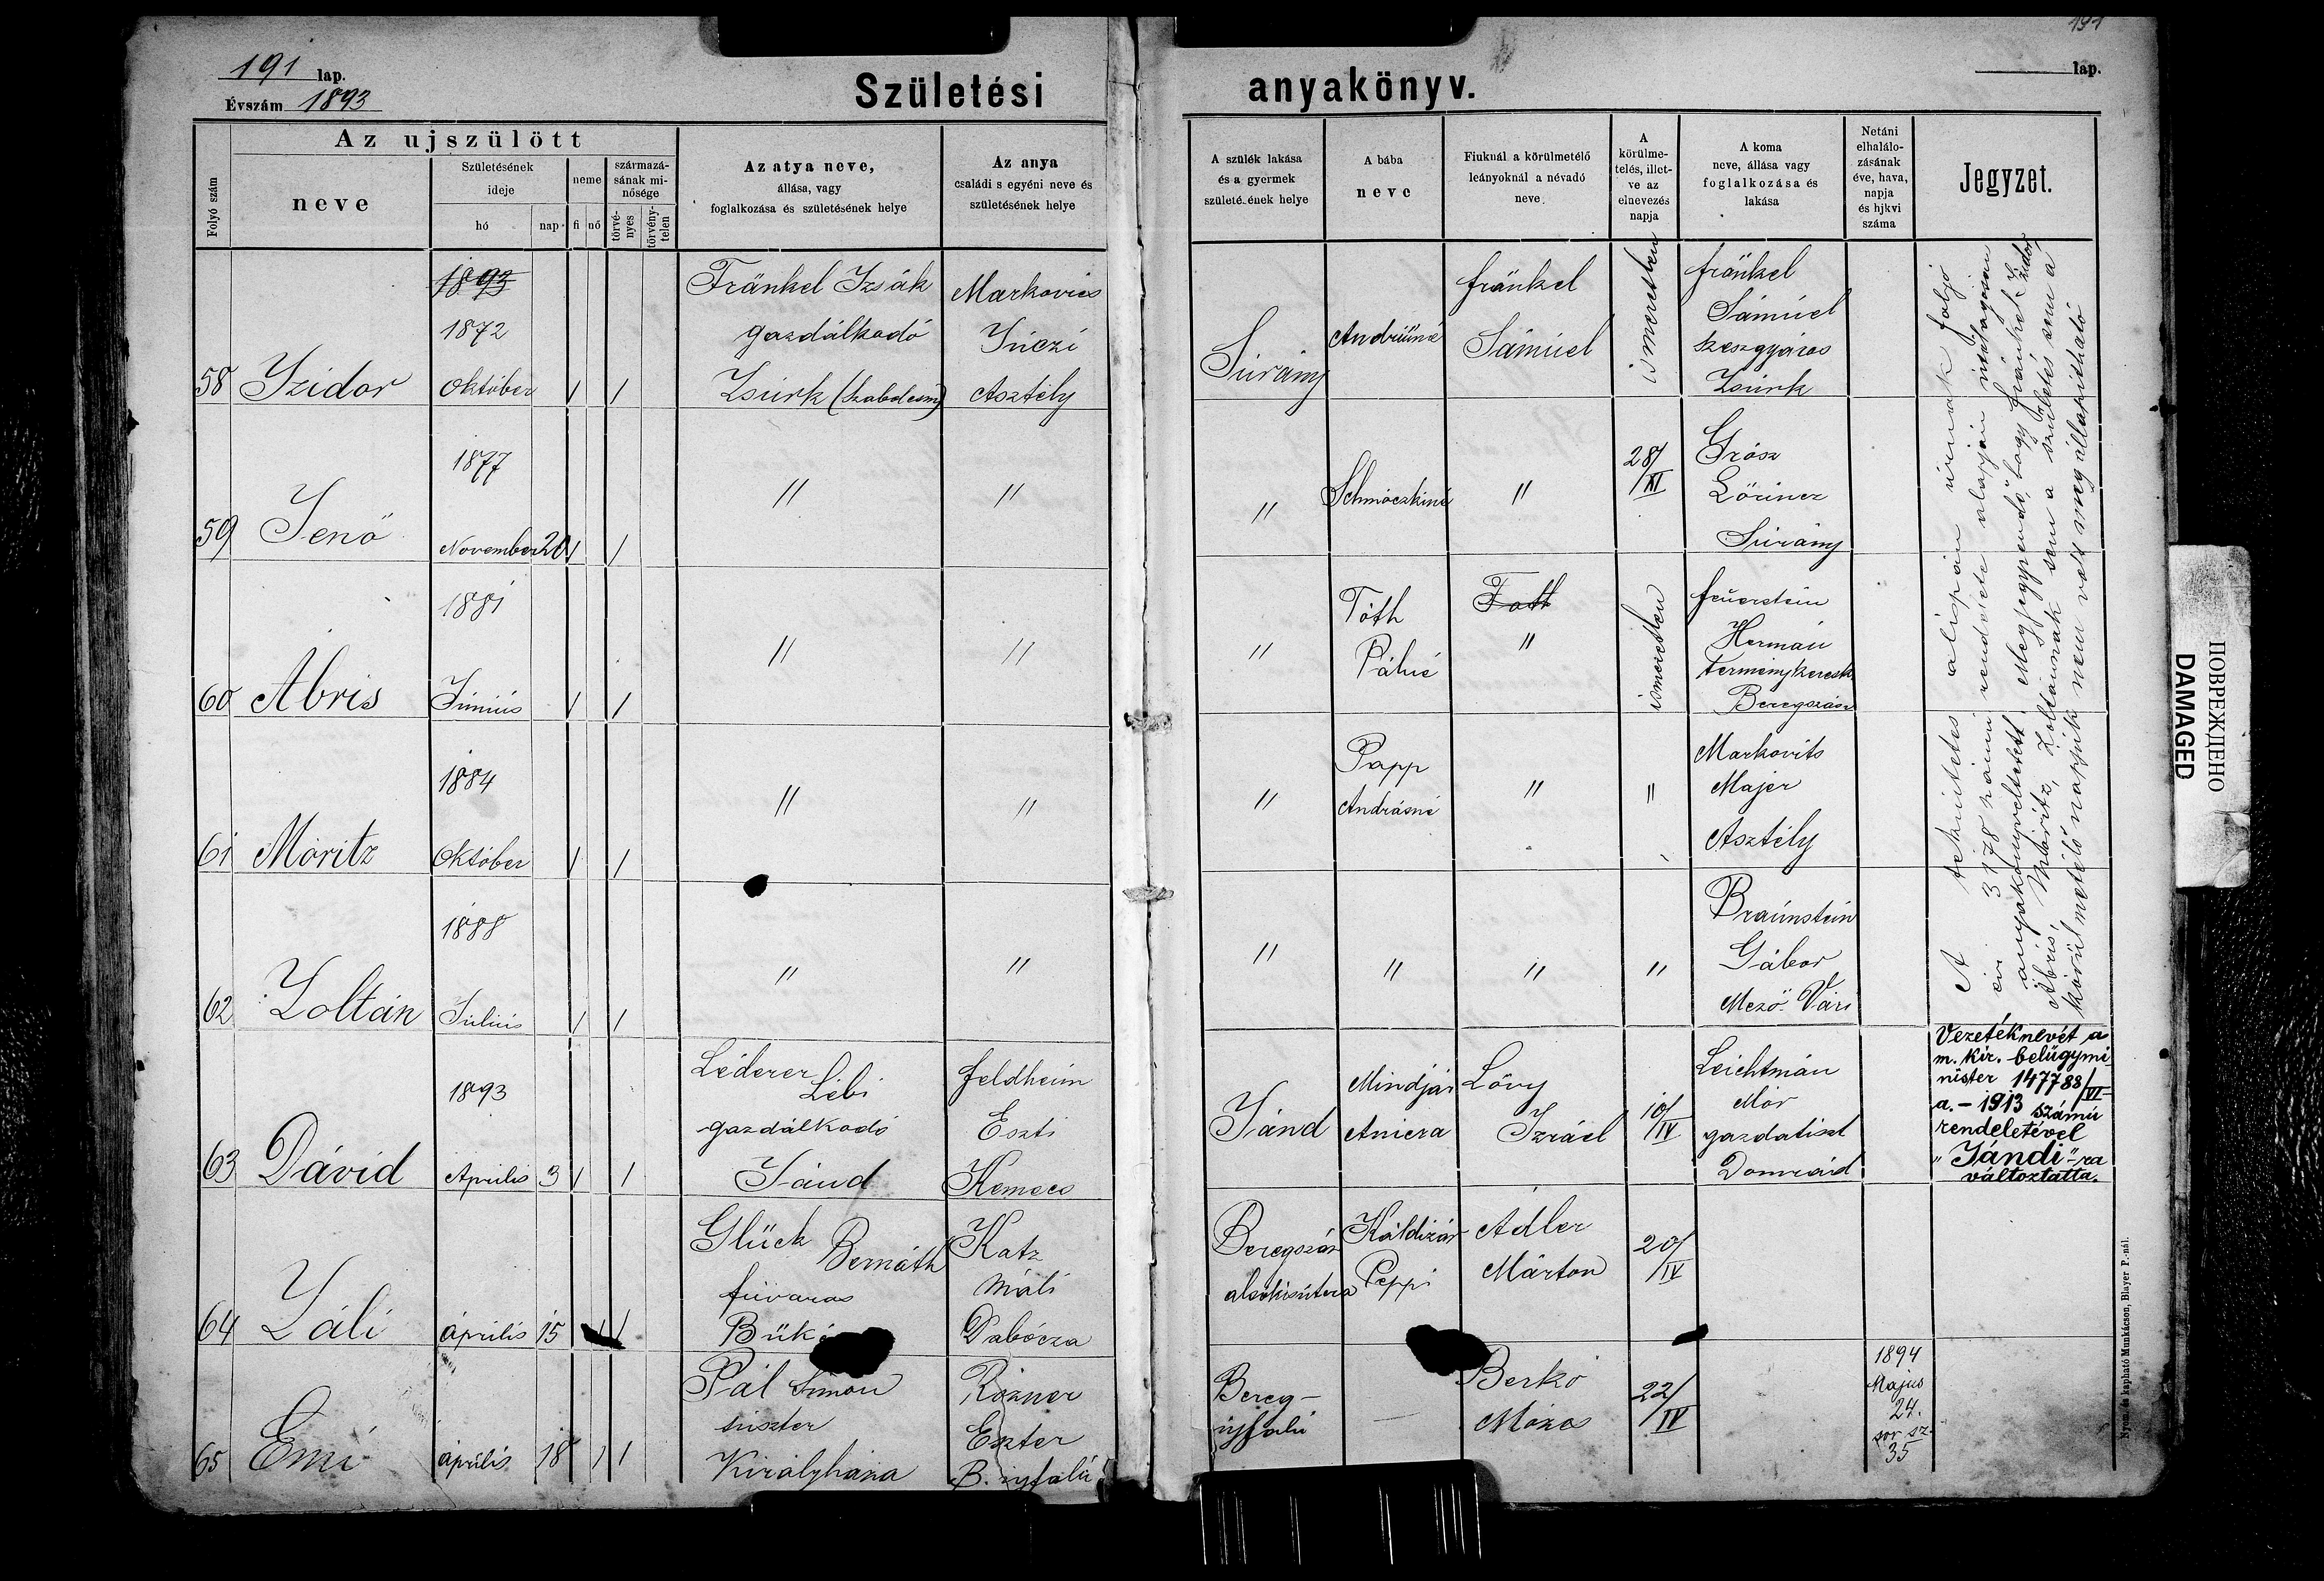 191 lap.
Évszám 1893
Születési anyakönyv.
191
lap.
Folyó szám
Az ujszülött
neve
Születésének
ideje
hó
nap
neme
fi
nő
származá-
sának mi-
nősége
törvé-
nyes
törvény-
telen
Az atya neve,
állása, vagy
foglalkozása és születésének helye
Az anya
családi s egyéni neve és
születésének helye
A szülék lakása
és a gyermek
születé.ének helye
A bába
neve
Fiuknál a körülmetélő
leányoknál a névadó
neve
A
körülme-
telés, illet-
ve az
elnevezés
napja
A koma
neve, állása vagy
foglalkozása és
lakása
Netáni
elhalálo-
zásának
éve, hava,
napja
és hjkvi
száma
Jegyzet.
58 Izidor
1893
1872
Október
1 1
Fränkel Izsák
gazdálkodó
Zsurk (Szabolcsm)
Markovics
Asztély
Surány
fränkel
Sámuel
ismeretlen
fränkel
Sámuel
szeszgyáros
Zsurk
59 Jenő
1877
November 20
1 1
"
"
"
Schmiaczkiné
"
28/XI
Grósz
Lörincz
Surány
60 Ábris
1881
Június
1 1
"
"
"
Tóth
Pálné
Toth
"
ismeretlen
feuerstein
Hermán
terménykeresk.
Beregszász
61 Móritz
1884
Október
1 1
"
"
"
Papp
Andrásné
"
"
Markovits
Majer
Asztély
62 Zoltán
1888
Július
1 1
"
"
"
"
"
"
Braunstein
Gábor
Mező Vári
A tekintetes alispán úrnak folyó
évi 3178 számú rendelete alapján utólagosan
anyakönyveltetett. Megjegyzendő, hogy Fränkel Izidor,
Ábris, Móritz, Zoltánnak sem a születés sem a
körülmetélő napjuk nem volt megállapítható
63 Dávid
1893
Április 3
1 1
Léderer
Lébi
gazdálkodó
Jánd
feldheim
Eszti
Kemecs
Jánd
Mindjár
Löwy
Izráel
10/IV
Leichtmán
Mór
gazdatiszt
Vezetéknevét a
m. kir. belügymi-
nister 147788/VI-
a. - 1913 számú
rendeletével
"Jándi"-ra
változtatta.
64 Záli
április 15
1
Glück
Bernáth
fuvaros
Katz
Máli
Dabócza
Beregszász
Peppi
Adler
Márton
20/IV
65 Emi
április 18
1 1
Pál Simon
suszter
Királyháza
Rózner
Eszter
B. ujfalu
Bereg-
ujfalu
—
Berkó
Mózes
22/IV
1894
Majus
24.
sor sz.
35
Nyom. és kapható Munkácson, Blayer P.-nál.
ПОВРЕЖДЕНО
DAMAGED